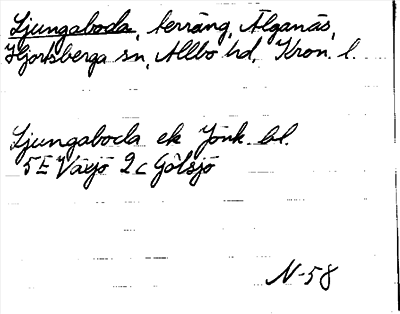 Ljungaboda, terräng, Älganäs,
Hjortsberga sn, Allbo hd, Kron. l.
Ljungaboda ek Jönk. bl.
5E Växjö 2c Götsjö
N-58